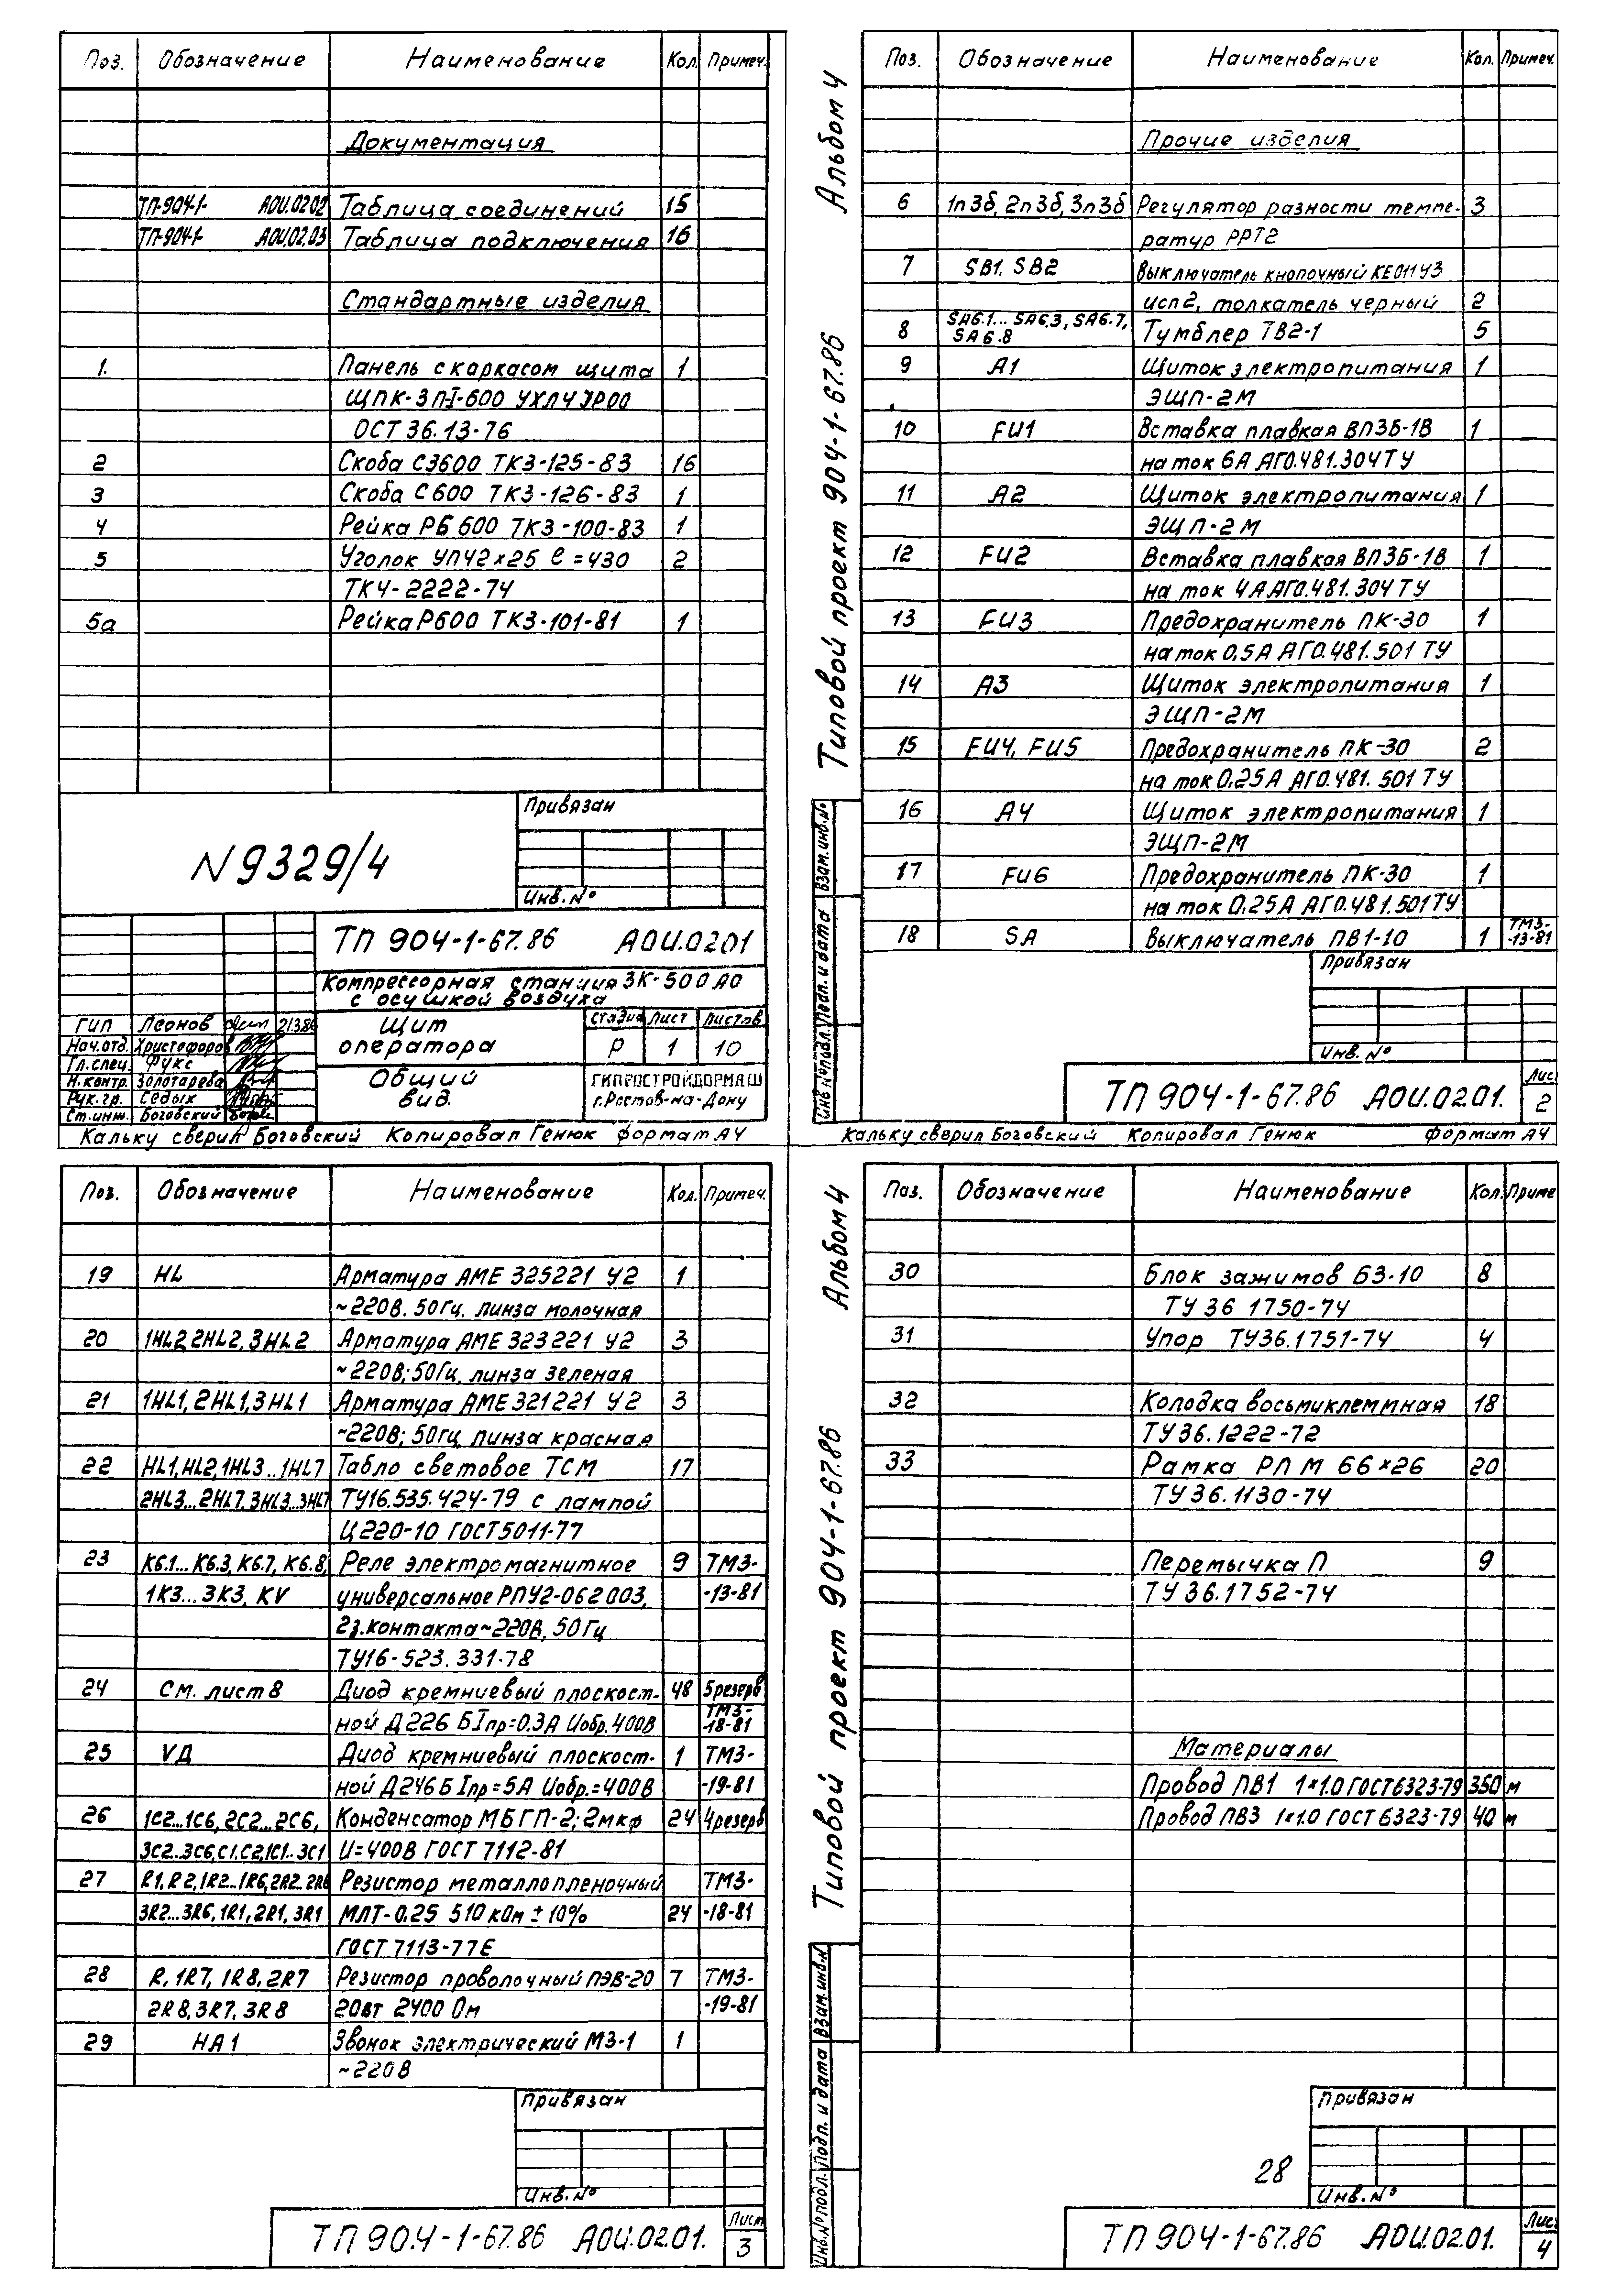 Поз. Обозначение Наименование Кол. Примеч.
Документация
ТП-904-1- АОИ.02.02 Таблица соединений 15
ТП-904-1- АОИ.02.03 Таблица подключения 16
Стандартные изделия
1. Панель с каркасом щита 1
ЩПК-3П-I-600 УХЛЧ JP00
ОСТ 36.13-76
2 Скоба С3600 ТК3-125-83 16
3 Скоба С600 ТК3-126-83 1
4 Рейка РБ 600 ТК3-100-83 1
5 Уголок УП42×25 ℓ=430 2
ТК4-2222-74
5а Рейка Р600 ТК3-101-81 1
N9329/4
Привязан
Инв. №
ТП 904-1-67.86 АОИ.02.01
Компрессорная станция 3К-500 АО
с осушкой воздуха
ГИП Леонов 21.3.86
Нач.отд. Христофоров
Гл.спец. Фукс
Н.контр. Золотарева
Рук.гр. Седых
Ст.инж. Боговский
Щит
оператора
Стадия Лист Листов
Р 1 10
Общий
вид.
ГИПРОСТРОЙДОРМАШ
г.Ростов-на-Дону
Кальку сверил Боговский Копировал Генюк формат А4
Альбом 4
Типовой проект 904-1-67.86
Поз. Обозначение Наименование Кол. Примеч.
Прочие изделия
6 1п3б, 2п3б, 3п3б Регулятор разности темпе- 3
ратур РРТ2
7 SB1. SB2 Выключатель кнопочный КЕ011У3
исп 2, толкатель черный 2
8 SA6.1... SA6.3, SA6.7, SA6.8 Тумблер ТВ2-1 5
9 А1 Щиток электропитания 1
ЭЩП-2М
10 FU1 Вставка плавкая ВП3Б-1В 1
на ток 6А АГ0.481.304ТУ
11 А2 Щиток электропитания 1
ЭЩП-2М
12 FU2 Вставка плавкая ВП3Б-1В 1
на ток 4А АГ0.481.304 ТУ
13 FU3 Предохранитель ПК-30 1
на ток 0,5А АГ0.481.501 ТУ
14 А3 Щиток электропитания 1
ЭЩП-2М
15 FU4, FU5 Предохранитель ПК-30 2
на ток 0,25А АГ0.481.501 ТУ
16 А4 Щиток электропитания 1
ЭЩП-2М
17 FU6 Предохранитель ПК-30 1
на ток 0,25А АГ0.481.501ТУ
18 SA Выключатель ПВ1-10 1 ТМ3-
-13-81
Привязан
Инв. №
Инв № подл. Подп. и дата Взам.инв.№
ТП 904-1-67.86 АОИ.02.01. Лис
2
Кальку сверил Боговский Копировал Генюк формат А4
Поз. Обозначение Наименование Кол. Примеч.
19 HL Арматура АМЕ 325221 У2 1
~220В. 50Гц. линза молочная
20 1HL2, 2HL2, 3HL2 Арматура АМЕ 323221 У2 3
~220В; 50Гц. линза зеленая
21 1HL1, 2HL1, 3HL1 Арматура АМЕ 321221 У2 3
~220В; 50гц, линза красная
22 HL1, HL2, 1HL3...1HL7 Табло световое ТСМ 17
2HL3...2HL7, 3HL3...3HL7 ТУ16.535.424-79 с лампой
Ц220-10 ГОСТ 5011-77
23 К6.1... К6.3, К6.7, К6.8, Реле электромагнитное 9 ТМ3-
1К3... 3К3, KV универсальное РПУ2-062003, -13-81
2з.контакта~220В, 50 Гц
ТУ16-523.331-78
24 См. лист 8 Диод кремниевый плоскост- 48 5резерв
ной Д226 Б Iпр=0.3А Uобр.400В ТМ3-
-18-81
25 VД Диод кремниевый плоскост- 1 ТМ3-
ной Д246Б Iпр=5А Uобр.=400В -19-81
26 1С2...1С6, 2С2...2С6, Конденсатор МБГП-2; 2мкф 24 4резерв
3С2..3С6, С1, С2, 1С1...3С1 U=400В ГОСТ 7112-81
27 R1, R2, 1R2...1R6, 2R2..2R6 Резистор металлопленочный ТМ3-
3R2...3R6, 1R1, 2R1, 3R1 МЛТ-0.25 510 кОм ±10% 24 -18-81
ГОСТ 7113-77Е
28 R, 1R7, 1R8, 2R7 Резистор проволочный ПЭВ-20 7 ТМ3-
2R8, 3R7, 3R8 20вт 2400 Ом -19-81
29 НА1 Звонок электрический МЗ-1 1
~220В
Привязан
Инв. №
ТП 904-1-67.86 АОИ.02.01. Лист
3
Альбом 4
Типовой проект 904-1-67.86
Поз. Обозначение Наименование Кол. Приме
30 Блок зажимов БЗ-10 8
ТУ 36 1750-74
31 Упор ТУ36.1751-74 4
32 Колодка восьмиклеммная 18
ТУ36.1222-72
33 Рамка РПМ 66×26 20
ТУ 36.1130-74
Перемычка П 9
ТУ 36.1752-74
Материалы
Провод ПВ1 1×1.0 ГОСТ 6323-79 350 м
Провод ПВ3 1×1.0 ГОСТ 6323-79 40 м
Привязан
28
Инв. №
Инв.№ подл. Подп. и дата Взам.инв.№
ТП 904-1-67.86 АОИ.02.01. Лис
4